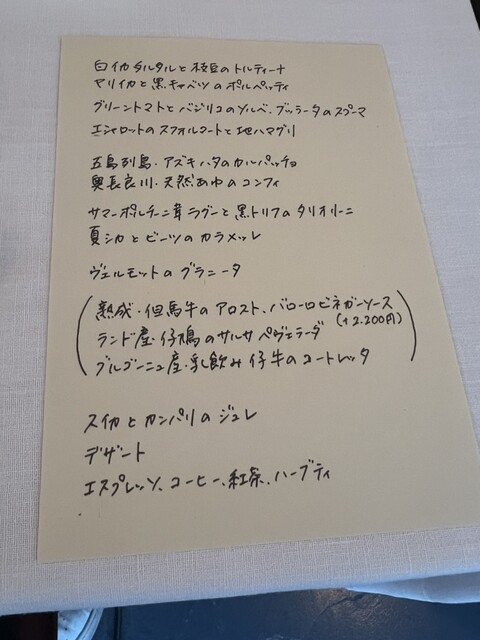 白イカタルタルと枝豆のトルティーナ
マリイカと黒キャベツのポルペッティ
グリーントマトとバジリコのソルベ、ブッラータのスプーマ
エシャロットのスフォルマートと地ハマグリ
五島列島・アズキハタのカルパッチョ
奥長良川・天然あゆのコンフィ
サマーポルチーニ茸ラグーと黒トリフのタリオリーニ
夏シカとビーツのカラメッレ
ヴェルモットのグラニータ
熟成・但馬牛のアロスト、バローロビネガーソース
(+2.200円)
ランド産・仔鳩のサルサペヴェラーダ
ブルゴーニュ産・乳飲み仔牛のコートレッタ
スイカとカンパリのジュレ
デザート
エスプレッソ、コーヒー、紅茶、ハーブティ